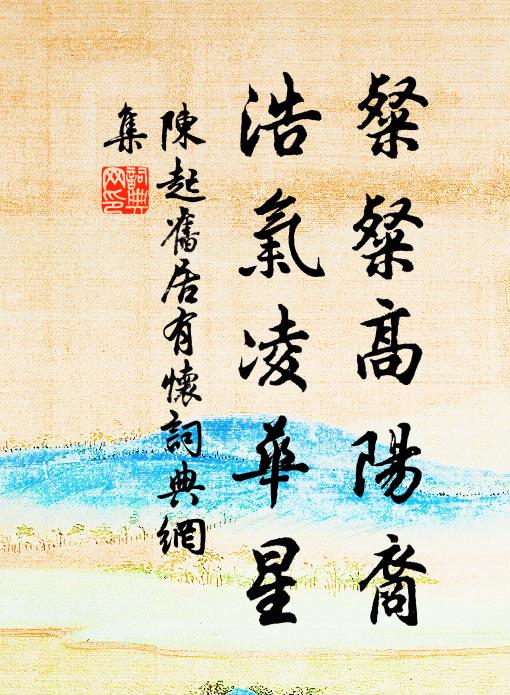 粲粲高陽裔
浩氣凌華星
陳起舊居有懷詞典網
集
詞典網印